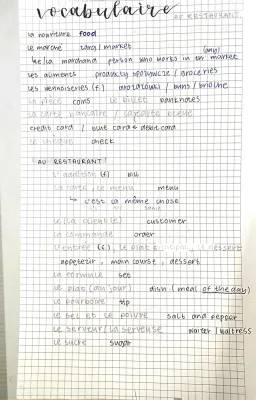 vocabulaire
AU RESTAURANT
la nourriture food
le marché targ / market
(any)
le/la marchand person who works in the market
les aliments produkty spożywcze / groceries
les viennoiseries (f.) / buns / brioche
la pièce coins le billet banknotes
la carte bancaire / la carte bleue
credit card / blue card = debit card
le chèque check
AU RESTAURANT:
l'addition (f) bill
la carte, le menu menu
↳ c'est la même chose
same
le/la client(e) customer
la commande order
l'entrée (f.), le plat principal, le dessert
appetizer, main course, dessert
la formule set
le plat (du jour) dish (meal of the day)
le pourboire tip
le sel et le poivre salt and pepper
le serveur / la serveuse waiter / waitress
le sucre sugar